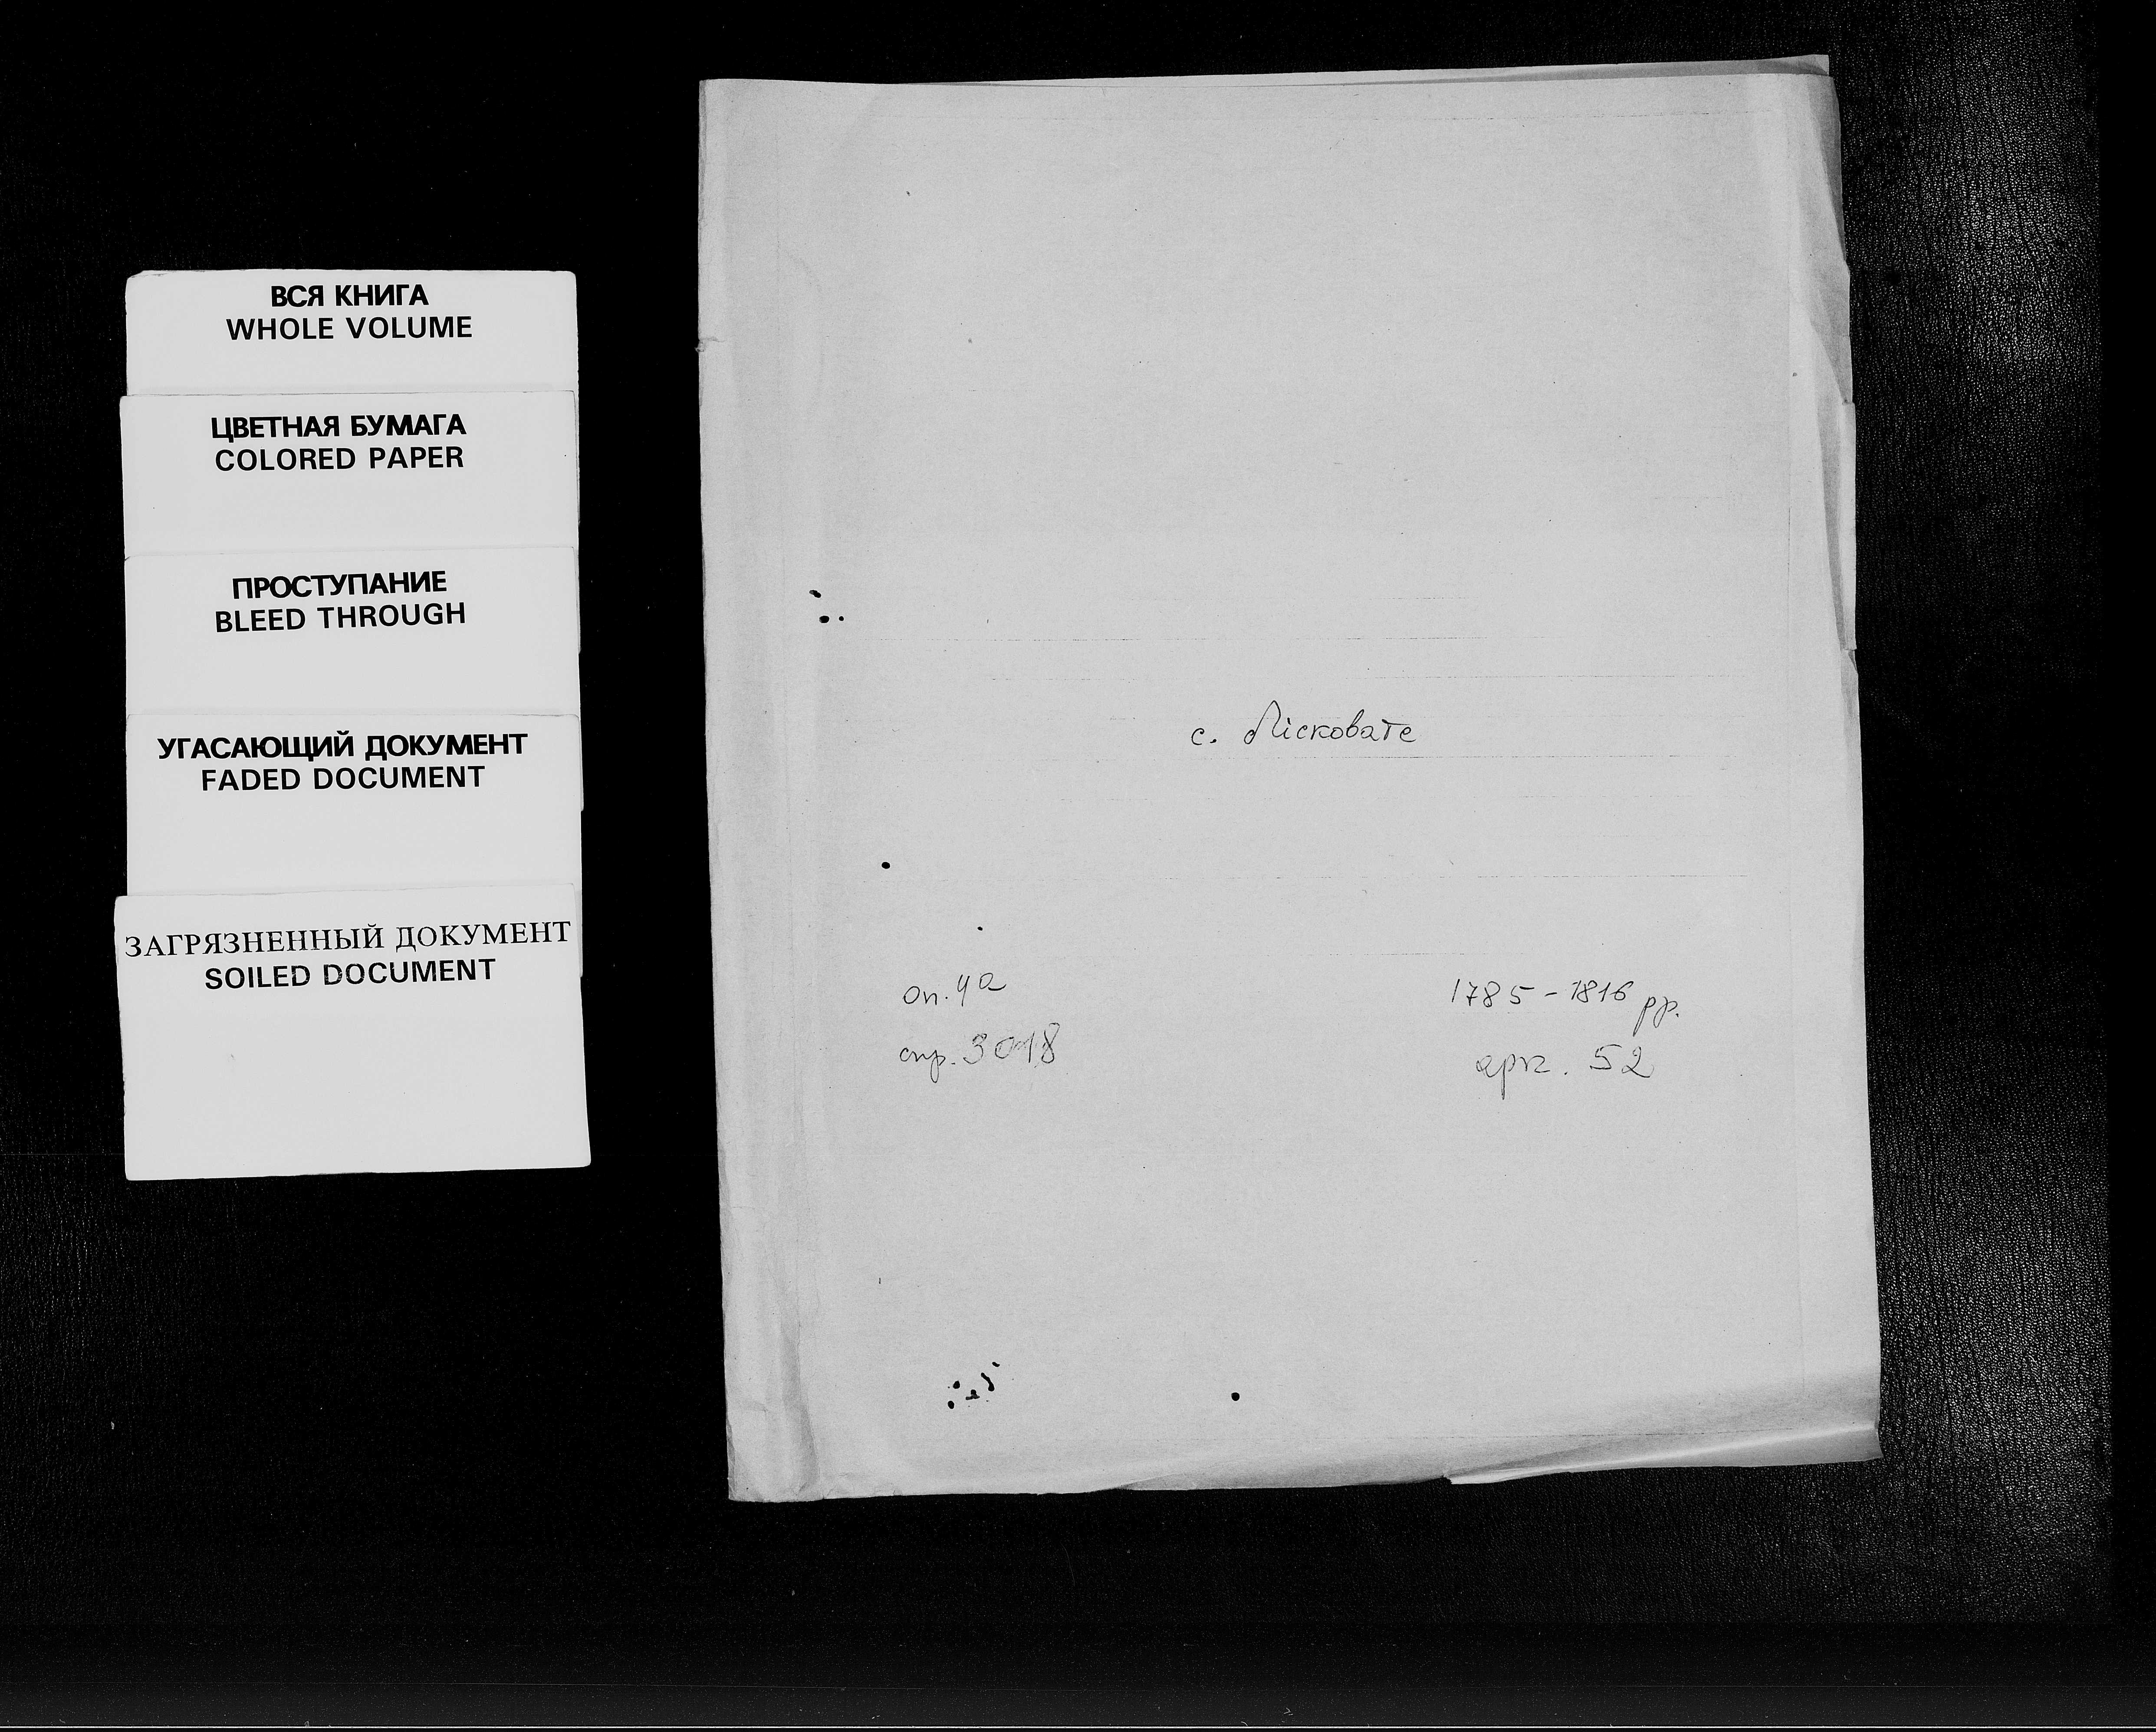 ВСЯ КНИГА
WHOLE VOLUME
ЦВЕТНАЯ БУМАГА
COLORED PAPER
ПРОСТУПАНИЕ
BLEED THROUGH
УГАСАЮЩИЙ ДОКУМЕНТ
FADED DOCUMENT
ЗАГРЯЗНЕННЫЙ ДОКУМЕНТ
SOILED DOCUMENT
с. Лісковате
оп. 4а
спр. 3018
1785-1816 рр.
арк. 52